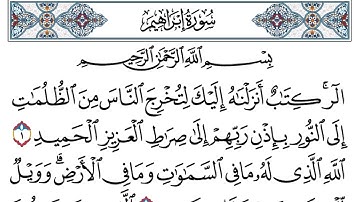 سُورَةُ إِبْرَاهِيمَ
بِسْمِ اللَّهِ الرَّحْمَٰنِ الرَّحِيمِ
الٓر ۚ كِتَابٌ أَنزَلْنَاهُ إِلَيْكَ لِتُخْرِجَ النَّاسَ مِنَ الظُّلُمَاتِ
إِلَى النُّورِ بِإِذْنِ رَبِّهِمْ إِلَىٰ صِرَاطِ الْعَزِيزِ الْحَمِيدِ ١
اللَّهِ الَّذِي لَهُ مَا فِي السَّمَاوَاتِ وَمَا فِي الْأَرْضِ ۗ وَوَيْلٌ